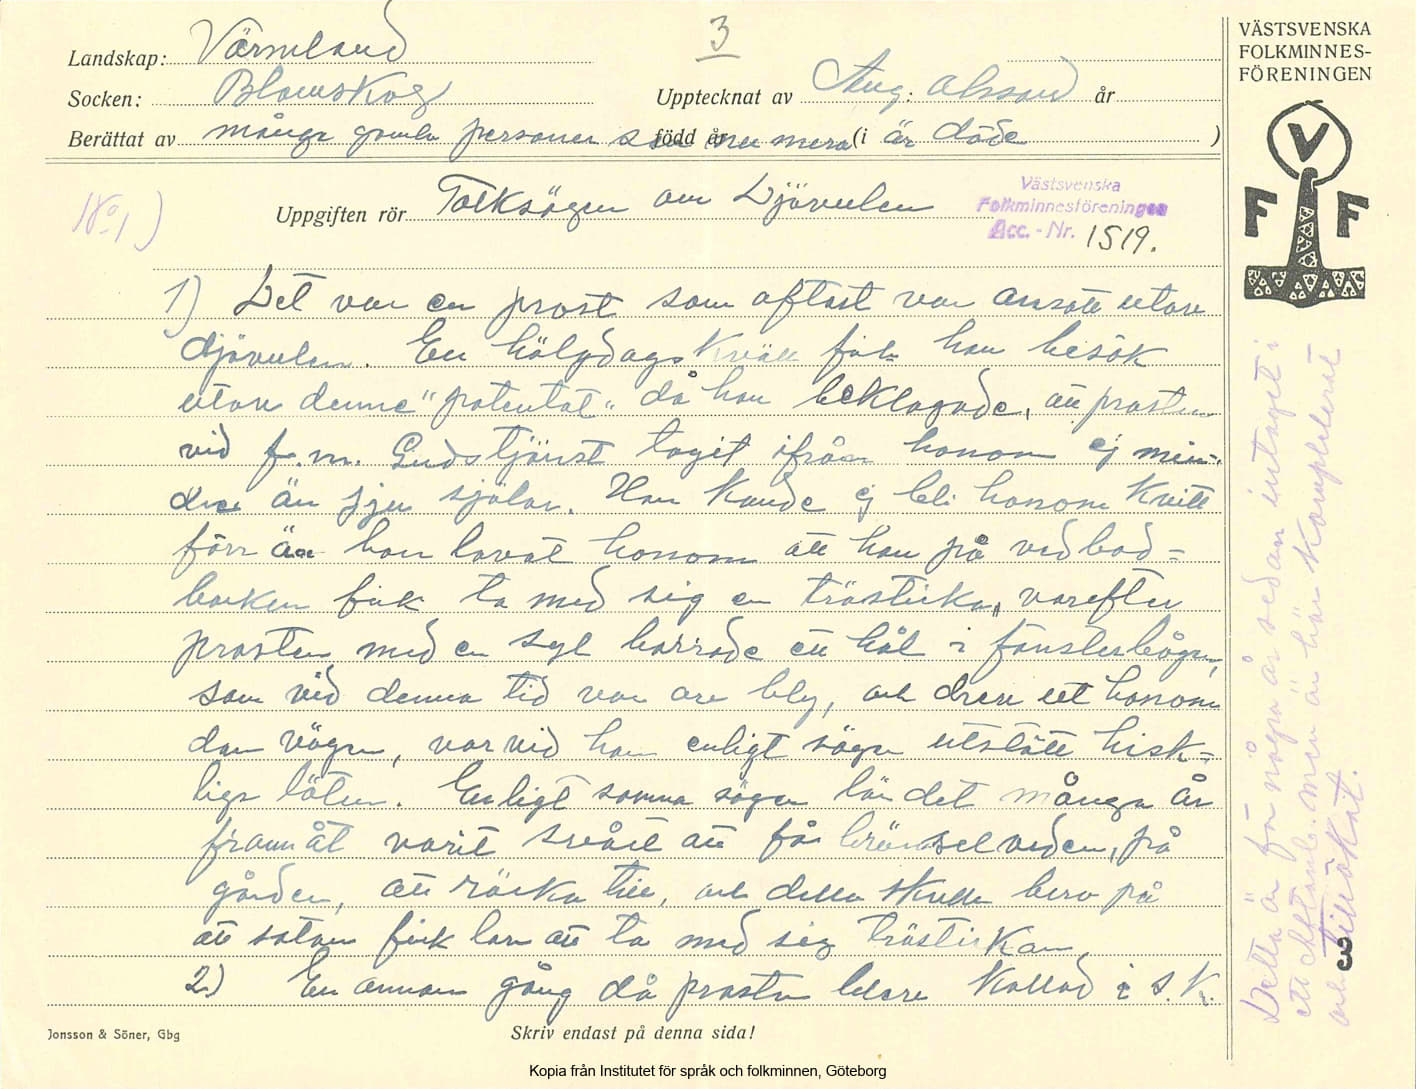 Landskap: Värmland
3
Socken: Blomskog
Upptecknat av Aug. Olsson år
Berättat av många gamla personer som nu mera född år (i är döde )
VÄSTSVENSKA
FOLKMINNES-
FÖRENINGEN
V
F F
No 1)
Uppgiften rör Folksägen om Djävulen
Västsvenska
Folkminnesföreningen
Acc. - Nr. 1519.
1) Det var en prost som oftast var ansatt utav
djävulen. En hälgdagskväll fick han besök
utav denne "potentat" då han beklagade, att prosten
vid f.m. Gudstjänst tagit ifrån honom ej min-
dre än sju själar. Han kunde ej bli honom kvitt
förr än han lovat honom att han på vedbod-
backen fick ta med sig en trästicka, varefter
prosten med en syl borrade ett hål i fönsterbågen,
som vid denna tid var av bly, och drev ut honom
den vägen, varvid han enligt sägen utstötte hisk-
liga läten. Enligt samma sägen lär det många år
framåt varit svårt att få bränselveden, på
gården, att räcka till, och detta skulle bero på
att satan fick lov att ta med sig trästickan
2) En annan gång då prosten blev kallad i s.k.
Detta är för några år sedan intaget i
ett aftonb. men är här kompleterat
och tillökat.
3
Jonsson & Söner, Gbg
Skriv endast på denna sida!
Kopia från Institutet för språk och folkminnen, Göteborg